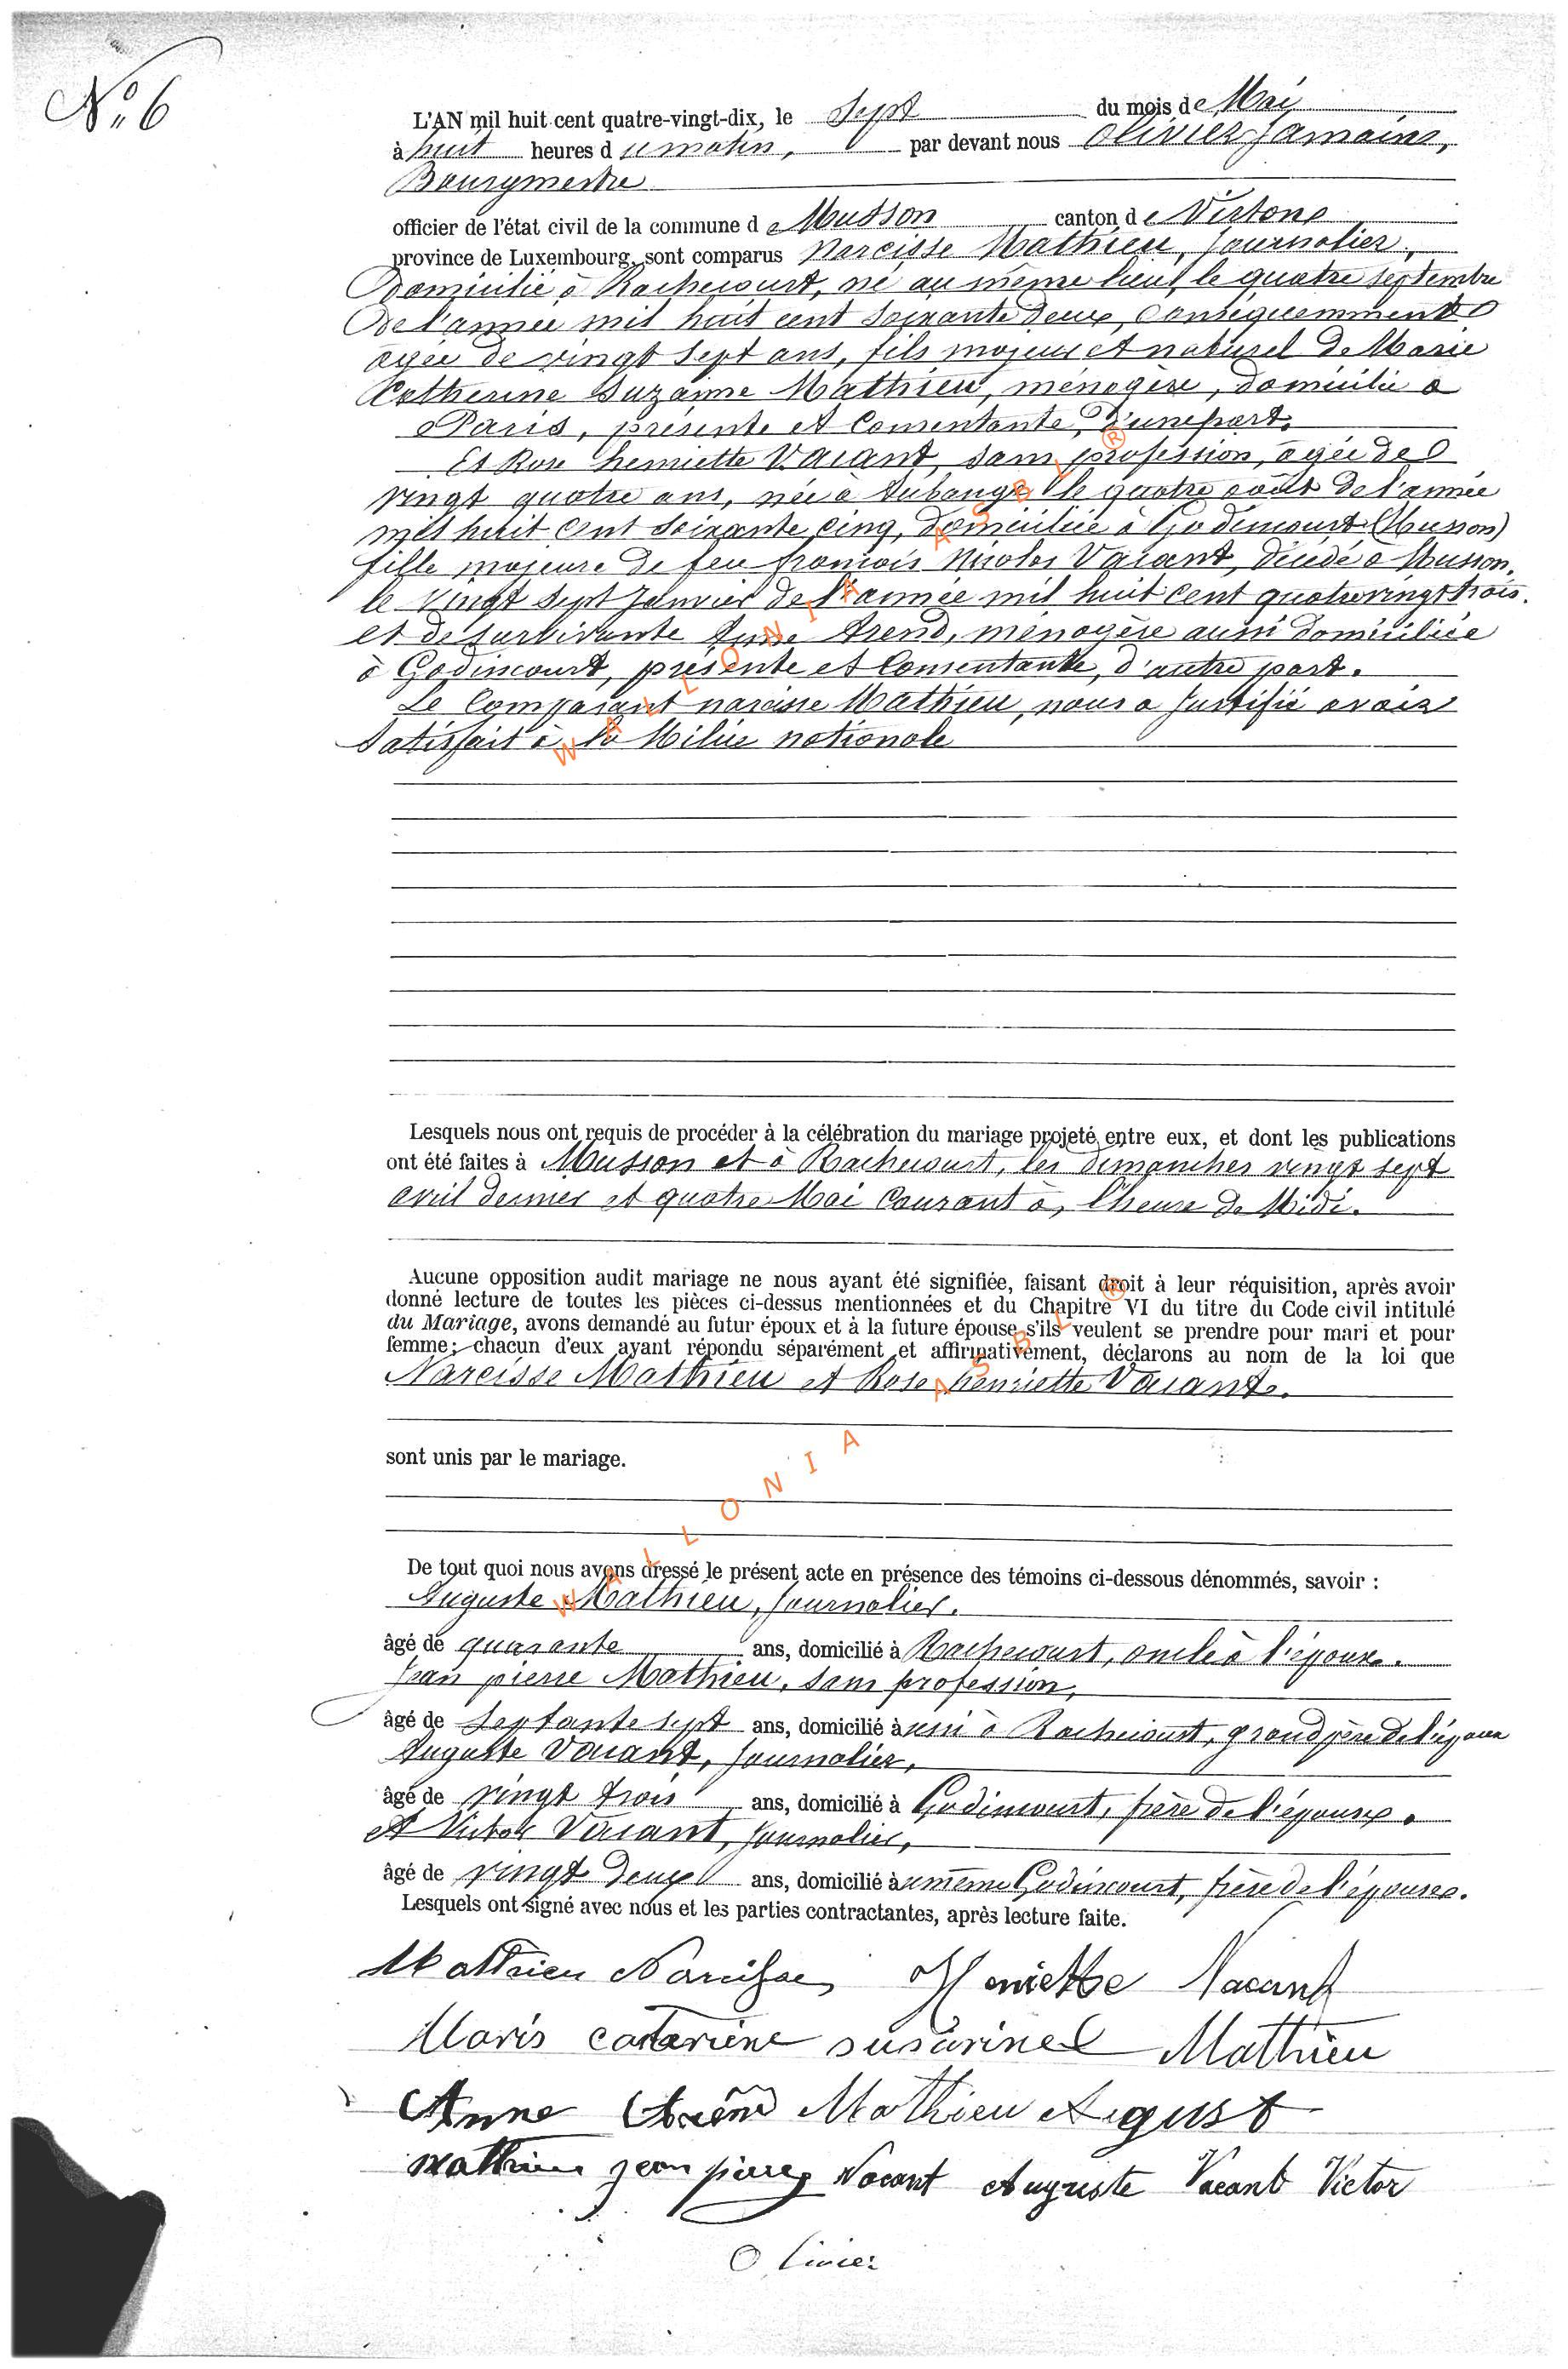 N° 6
L'AN mil huit cent quatre-vingt-dix, le sept du mois de Mai
à huit heures d u matin, par devant nous Olivier Jamains,
Bourgmestre
officier de l'état civil de la commune d e Musson canton d e Virton
province de Luxembourg, sont comparus Narcisse Mathieu, Journalier,
Domicilié à Rachecourt, né au même lieu, le quatre septembre
De l'année mil huit cent soixante deux, Conséquemment
agée de vingt sept ans, fils majeur et naturel de Marie
Catherine Suzanne Mathieu, ménagère, domicilié à
Paris, présente et Consentante, D'une part.
Et Rose henriette Vacant, sans profession, agée de
vingt quatre ans, née à Aubange le quatre août de l'année
mil huit cent soixante cinq, domiciliée à Godincourt (Musson)
fille majeure de feu francois Nicolas Vacant, Décédé à Musson,
le vingt sept Janvier de l'année mil huit cent quatrevingt trois.
et de survivante Anne Arend, ménagère aussi domiciliée
à Godincourt, présente et Consentante, d'autre part.
Le Comparant narcisse Mathieu, nous a Justifié avoir
Satisfait à la Milice nationale
Lesquels nous ont requis de procéder à la célébration du mariage projeté entre eux, et dont les publications
ont été faites à Musson et à Rachecourt, les dimanches vingt sept
avril dernier et quatre Mai Courant à, l'heure de Midi.
Aucune opposition audit mariage ne nous ayant été signifiée, faisant droit à leur réquisition, après avoir
donné lecture de toutes les pièces ci-dessus mentionnées et du Chapitre VI du titre du Code civil intitulé
du Mariage, avons demandé au futur époux et à la future épouse s'ils veulent se prendre pour mari et pour
femme; chacun d'eux ayant répondu séparément et affirmativement, déclarons au nom de la loi que
Narcisse Mathieu et Rose henriette Vacant.
sont unis par le mariage.
De tout quoi nous avons dressé le présent acte en présence des témoins ci-dessous dénommés, savoir :
Auguste Mathieu, Journalier.
âgé de quarante ans, domicilié à Rachecourt, oncle à l'époux.
Jean pierre Mathieu, sans profession,
âgé de septante sept ans, domicilié à ussi à Rachecourt, grand père de l'époux
Auguste Vacant, Journalier,
âgé de vingt trois ans, domicilié à Godincourt, frère de l'épouse.
et Victor Vacant, Journalier,
âgé de vingt deux ans, domicilié à u même Godincourt, frère de l'épouse.
Lesquels ont signé avec nous et les parties contractantes, après lecture faite.
Mathieu Narcisse Henriette Vacant
Maris catarine susanne Mathieu
Anne Arend Mathieu August
Mathieu jean pierre Vacant Auguste Vacant Victor
Olivier
WALLONIA ASBL ®
WALLONIA ASBL ®